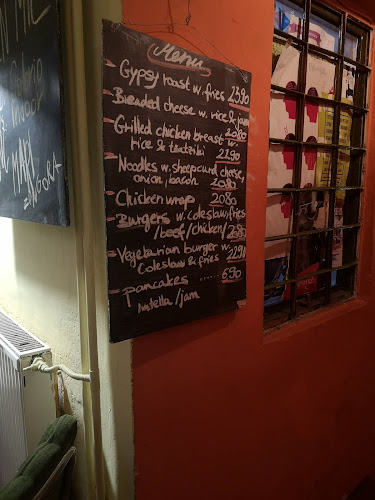 Menu
Gypsy roast w. fries 2390
Breaded cheese w. rice & jam
2080
Grilled chicken breast w.
rice & tzatziki 2190
Noodles w. sheepcurd cheese,
onion, bacon 2080
Chicken wrap 2080
Burgers w. coleslaw, fries
/beef/chicken/ 2380
Vegetarian burger w. 2290
Coleslaw & fries
pancakes ...... 690
nutella/jam